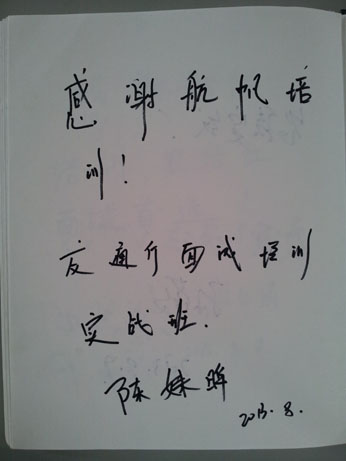 感谢航帆培
训!
交通厅面试培训
实战班.
陈姝晖
2013.8.